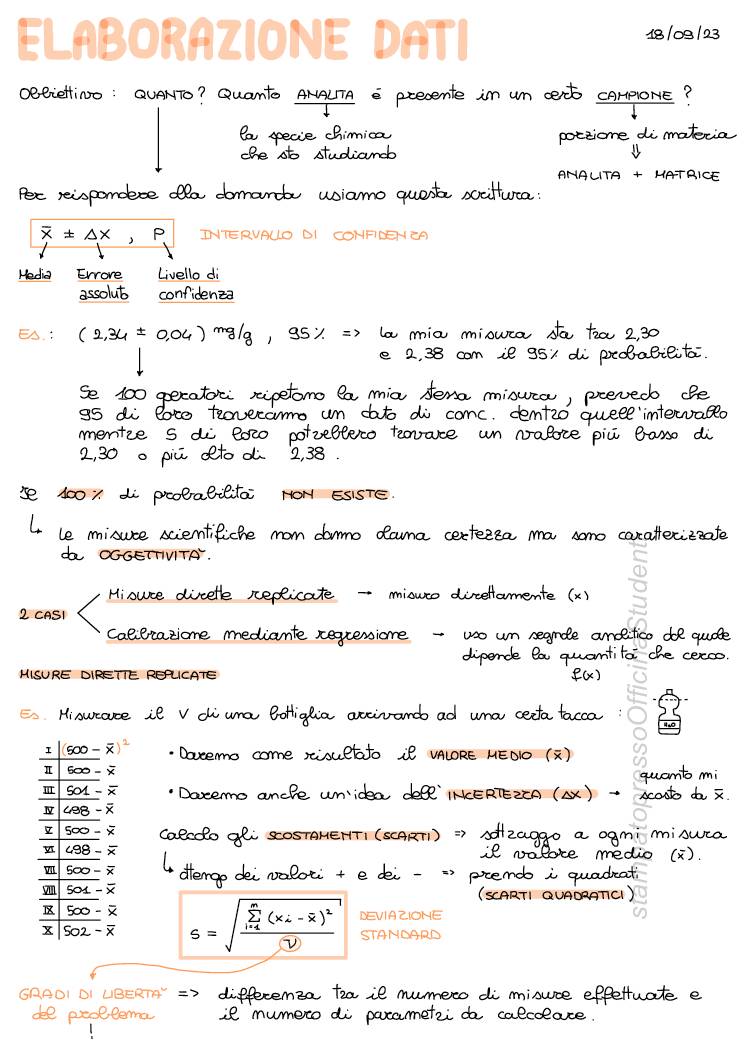 ELABORAZIONE DATI
18/09/23
Obbiettivo : QUANTO? Quanto ANALITA è presente in un certo CAMPIONE ?
la specie chimica
che sto studiando
porzione di materia
⇓
ANALITA + MATRICE
Per rispondere alla domanda usiamo questa scrittura:
x̄ ± Δx , P INTERVALLO DI CONFIDENZA
Media Errore assoluto Livello di confidenza
Es.: (2,34 ± 0,04) mg/g , 95% => la mia misura sta tra 2,30
e 2,38 con il 95% di probabilità.
Se 100 operatori ripetono la mia stessa misura, prevedo che
95 di loro troveranno un dato di conc. dentro quell'intervallo
mentre 5 di loro potrebbero trovare un valore più basso di
2,30 o più alto di 2,38.
Se 100% di probabilità NON ESISTE.
↳ le misure scientifiche non danno alcuna certezza ma sono caratterizzate
da OGGETTIVITA'.
2 CASI
Misure dirette replicate → misuro direttamente (x)
Calibrazione mediante regressione → uso un segnale analitico dal quale
dipende la quantità che cerco.
f(x)
MISURE DIRETTE REPLICATE
Es. Misurare il V di una bottiglia arrivando ad una certa tacca :
H₂O
I (500 - x̄)²
II 500 - x̄
III 501 - x̄
IV 498 - x̄
V 500 - x̄
VI 498 - x̄
VII 500 - x̄
VIII 501 - x̄
IX 500 - x̄
X 502 - x̄
• Daremo come risultato il VALORE MEDIO (x̄)
• Daremo anche un'idea dell'INCERTEZZA (Δx) → quanto mi
scosto da x̄.
Calcolo gli SCOSTAMENTI (SCARTI) => sottraggo a ogni misura
il valore medio (x̄).
↳ ottengo dei valori + e dei - => prendo i quadrati
(SCARTI QUADRATICI)
s = √( Σ_{i=1}^{n} (xi - x̄)² / ν )
DEVIAZIONE
STANDARD
GRADI DI LIBERTA' => differenza tra il numero di misure effettuate e
del problema il numero di parametri da calcolare.
stampatopressoOfficinaStudenti